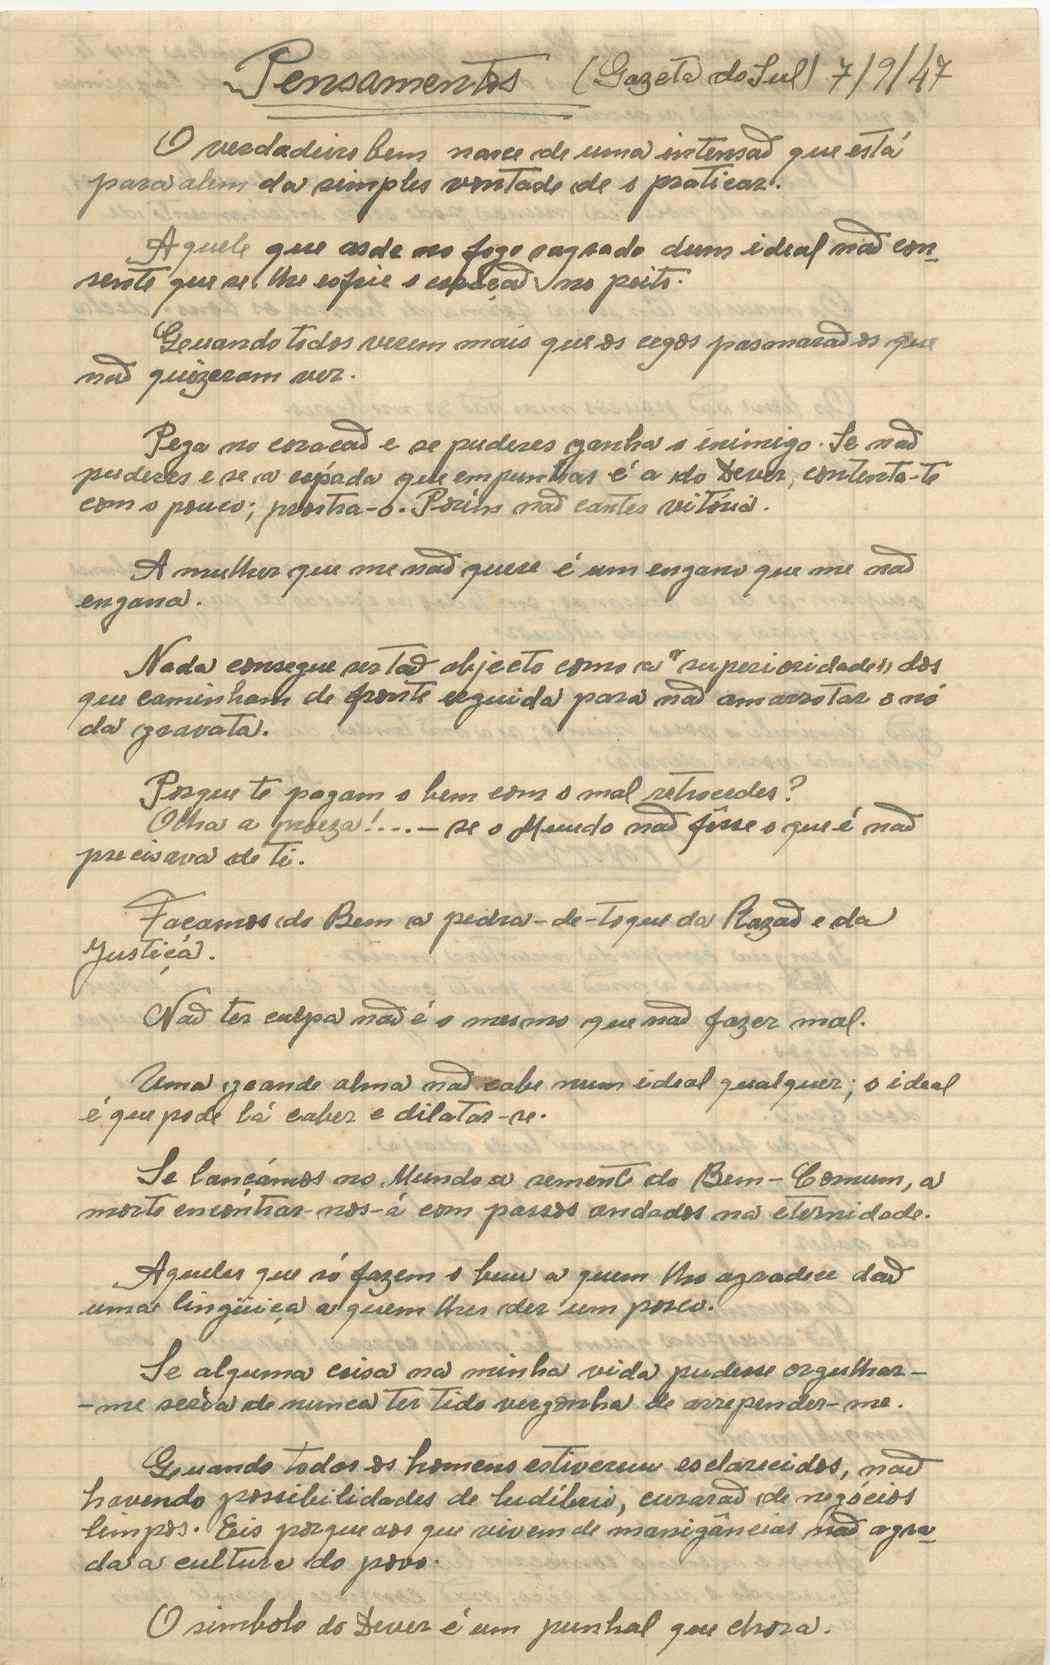 Pensamentos (Gazeta do Sul) 7/9/47
O verdadeiro bem nasce de uma intensão que está
para alem da simples vontade de o praticar.
Aquele que arde no fogo sagrado dum ideal não con-
sente que se lhe esfrie o coração no peito.
Quando todos virem mais que os cegos pasmarão os que
não quizeram ver.
Pega no coração e se puderes ganha o inimigo. Se não
puderes e se a espada que empunhas é a do Dever, contenta-te
com o pouco; prostra-o. Porém não cantes vitória.
A mulher que me não quere é um engano que me não
engana.
Nada consegue ser tão abjecto como a "superioridade" dos
que caminham de fronte erguida para não amarrotar o nó
da gravata.
Porque te pagam o bem com o mal retrocedes?
Olha a proeza!... — se o Mundo não fôsse o que é não
precisava de ti.
Façamos do Bem a pedra-de-toque da Razão e da
Justiça.
Não ter culpa não é o mesmo que não fazer mal.
Uma grande alma não cabe num ideal qualquer; o ideal
é que pode lá caber e dilatar-se.
Se lançámos no Mundo a semente do Bem-Comum, a
morte encontrar-nos-á com passos andados na eternidade.
Aqueles que só fazem o bem a quem lho agradece dão
uma lingüiça a quem lhes der um porco.
Se alguma coisa na minha vida pudesse orgulhar-
-me seria de nunca ter tido vergonha de arrepender-me.
Quando todos os homens estiverem esclarecidos, não
havendo possibilidades de ludíbrio, curarão de negócios
limpos. Eis porque aos que vivem de manigâncias não agra-
da a cultura do povo.
O simbolo do Dever é um punhal que chora.